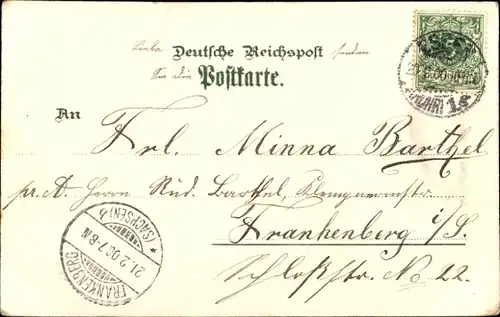 Liebe Deutsche Reichspost senden
Sie die Postkarte.
An
Frl. Minna Barthel
pr. A. Herrn Rud. Barthel, Klempnermstr.
Frankenberg i/S.
Schloßstr. No 22.
FRANKENBERG
(SACHSEN) b
21.2.00.7-8N